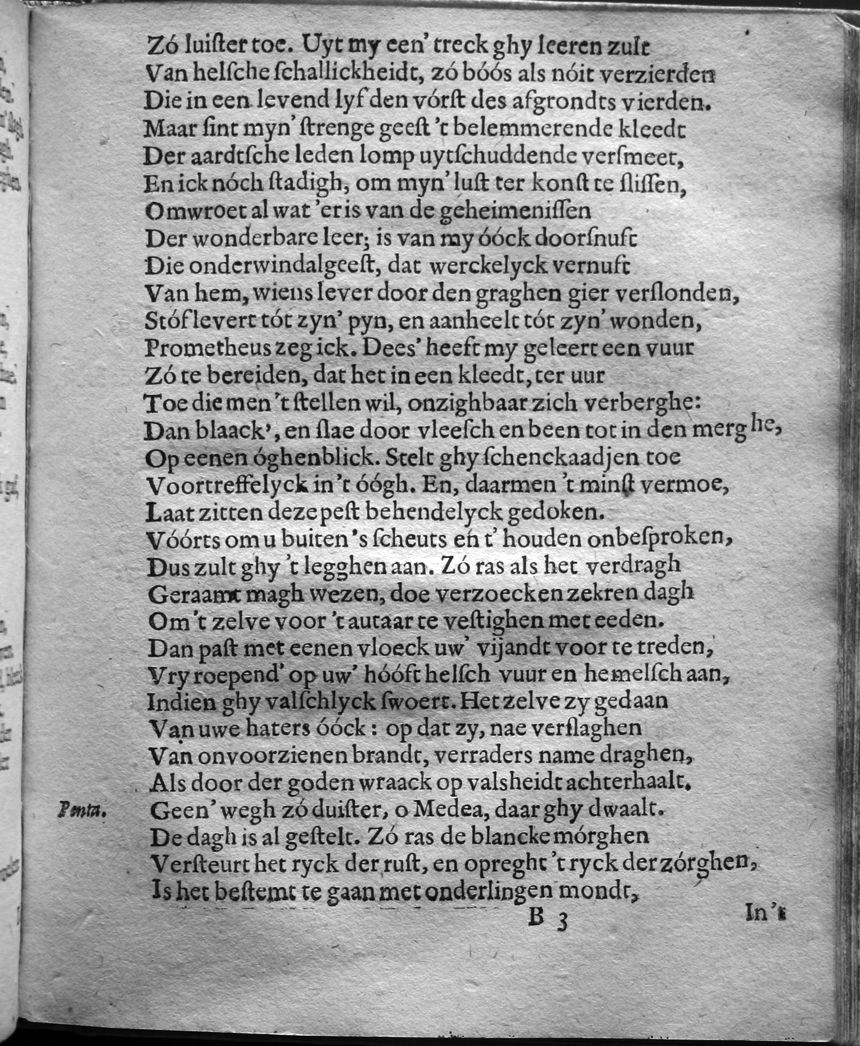 Zó luiſter toe. Uyt my een' treck ghy leeren zult
Van helſche ſchallickheidt, zó bóós als nóit verzierden
Die in een levend lyf den vórſt des afgrondts vierden.
Maar ſint myn' ſtrenge geeſt 't belemmerende kleedt
Der aardtſche leden lomp uytſchuddende verſmeet,
En ick nóch ſtadigh, om myn' luſt ter konſt te ſliſſen,
Omwroet al wat 'er is van de geheimeniſſen
Der wonderbare leer; is van my óóck doorſnuft
Die onderwindalgeeſt, dat werckelyck vernuft
Van hem, wiens lever door den graghen gier verſlonden,
Stóf levert tót zyn' pyn, en aanheelt tót zyn' wonden,
Prometheus zeg ick. Dees' heeft my geleert een vuur
Zó te bereiden, dat het in een kleedt, ter uur
Toe die men 't ſtellen wil, onzighbaar zich verberghe:
Dan blaack', en ſlae door vleeſch en been tot in den merghe,
Op eenen óghenblick. Stelt ghy ſchenckaadjen toe
Voortreffelyck in 't óógh. En, daarmen 't minſt vermoe,
Laat zitten deze peſt behendelyck gedoken.
Vóórts om u buiten 's ſcheuts en t' houden onbeſproken,
Dus zult ghy 't legghen aan. Zó ras als het verdragh
Geraamt magh wezen, doe verzoecken zekren dagh
Om 't zelve voor 't autaar te veſtighen met eeden.
Dan paſt met eenen vloeck uw' vijandt voor te treden,
Vry roepend' op uw' hóóft helſch vuur en hemelſch aan,
Indien ghy valſchlyck ſwoert. Het zelve zy gedaan
Van uwe haters óóck: op dat zy, nae verſlaghen
Van onvoorzienen brandt, verraders name draghen,
Als door der goden wraack op valsheidt achterhaalt.
Penta. Geen' wegh zó duiſter, o Medea, daar ghy dwaalt.
De dagh is al geſtelt. Zó ras de blancke mórghen
Verſteurt het ryck der ruſt, en opreght 't ryck der zórghen,
Is het beſtemt te gaan met onderlingen mondt,
B 3 In 't